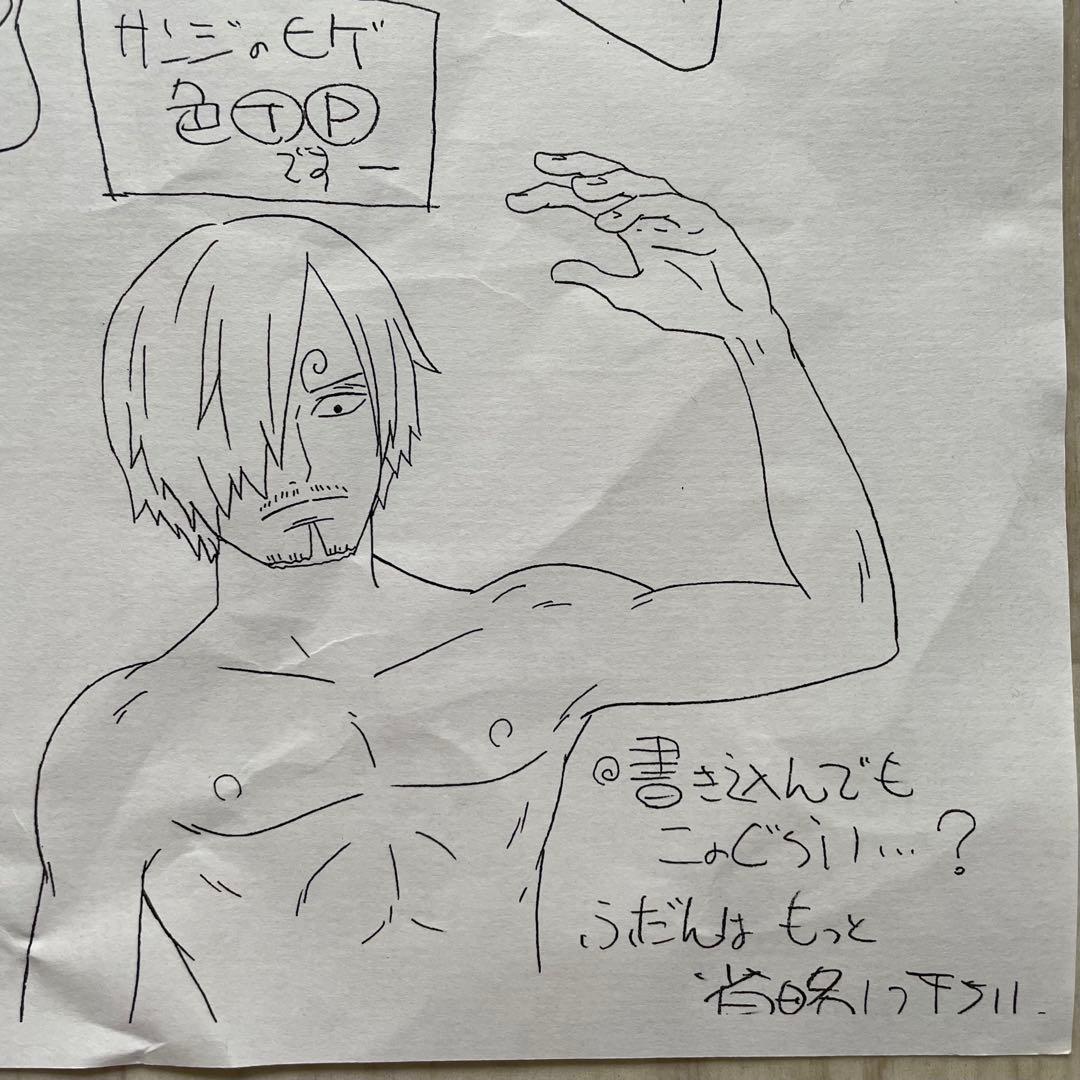 サンジのヒゲ
色ⓉⓅ
です ー
◎書き込んでも
このぐらい…?
ふだんは もっと
省略して下さい.